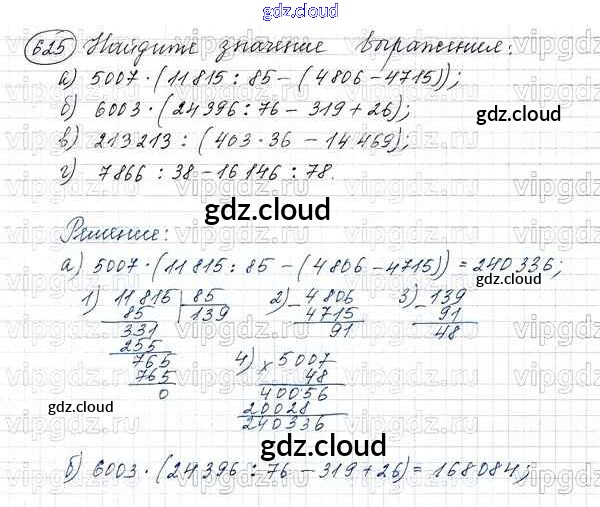 gdz.cloud
625 Найдите значение выражения:
а) 5007 · (11815 : 85 – (4806 – 4715));
б) 6003 · (24396 : 76 – 319 + 26);
gdz.cloud
в) 213213 : (403 · 36 – 14469);
г) 7866 : 38 – 16146 : 78.
gdz.cloud
Решение:
а) 5007 · (11815 : 85 – (4806 – 4715)) = 240336;
gdz.cloud
1) 11815 85 2) – 4806 3) – 139
85 139 4715 91
331 91 48
255
765 4) × 5007
765 48
0 40056
gdz.cloud
20028
240336
gdz.cloud
б) 6003 · (24396 : 76 – 319 + 26) = 168084;
vipgdz.ru